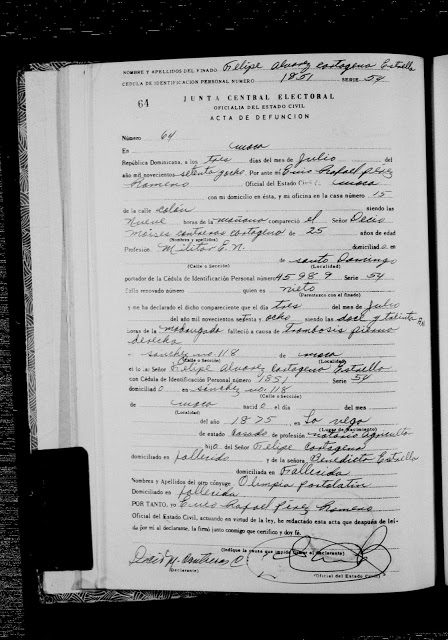 NOMBRE Y APELLIDOS DEL FINADO Felipe Alvarez Cartagena Estrella
CEDULA DE IDENTIFICACION PERSONAL NUMERO 1851 SERIE 54
64
JUNTA CENTRAL ELECTORAL
OFICIALIA DEL ESTADO CIVIL
ACTA DE DEFUNCION
Número 64
En moca
República Dominicana, a los tres días del mes de Julio del
año mil novecientos setenta y ocho Por ante mi Enio Rafael Pérez
Romero Oficial del Estado Civil moca
con mi domicilio en ésta, y mi oficina en la casa número 15
de la calle colón siendo las
Nueve horas de la mañana compareció el Señor Decio
Moises contreras cartagena de 25 años de edad
(Nombres y apellidos)
Profesión Militar E.N. domiciliado en
santo Domingo
(Calle o Sección) (Localidad)
portador de la Cédula de Identificación Personal número 45989 Serie 54
Sello renovado número quien es nieto
(Parentesco con el finado)
y me ha declarado el dicho compareciente que el día tres del mes de Julio
del año mil novecientos setenta y ocho siendo las doce y treinta
horas de la madrugada falleció a causa de Trombosis pierna
derecha
sanchez no. 118 de moca
(Calle o Sección) (Localidad)
el la Señor Felipe Alvarez cartagena Estrella
con Cédula de Identificación Personal número 1851 Serie 54
domiciliado en Sánchez no. 118
(Calle o Sección)
de moca nacido el día del mes
(Localidad)
del año 1875 en La vega
(Lugar de Nacimiento)
de estado casado de profesión notario
hijo del Señor Felipe Cartagena
domiciliado en fallecido y de la señora Benedicta Estrella
domiciliada en Fallecida
Nombres y Apellidos del otro cónyuge Olimpia portalatin
Domiciliado en fallecida
POR TANTO, yo Enio Rafael Pérez Romero
Oficial del Estado Civil, actuando en virtud de la ley, he redactado esta acta que después de leí-
da por mi al declarante, la firmó junto conmigo que certifico y doy fé.
(Indique la causa que impide firmar el declarante)
Decio M. Contreras C
(Declarante)
(Oficial del Estado Civil)